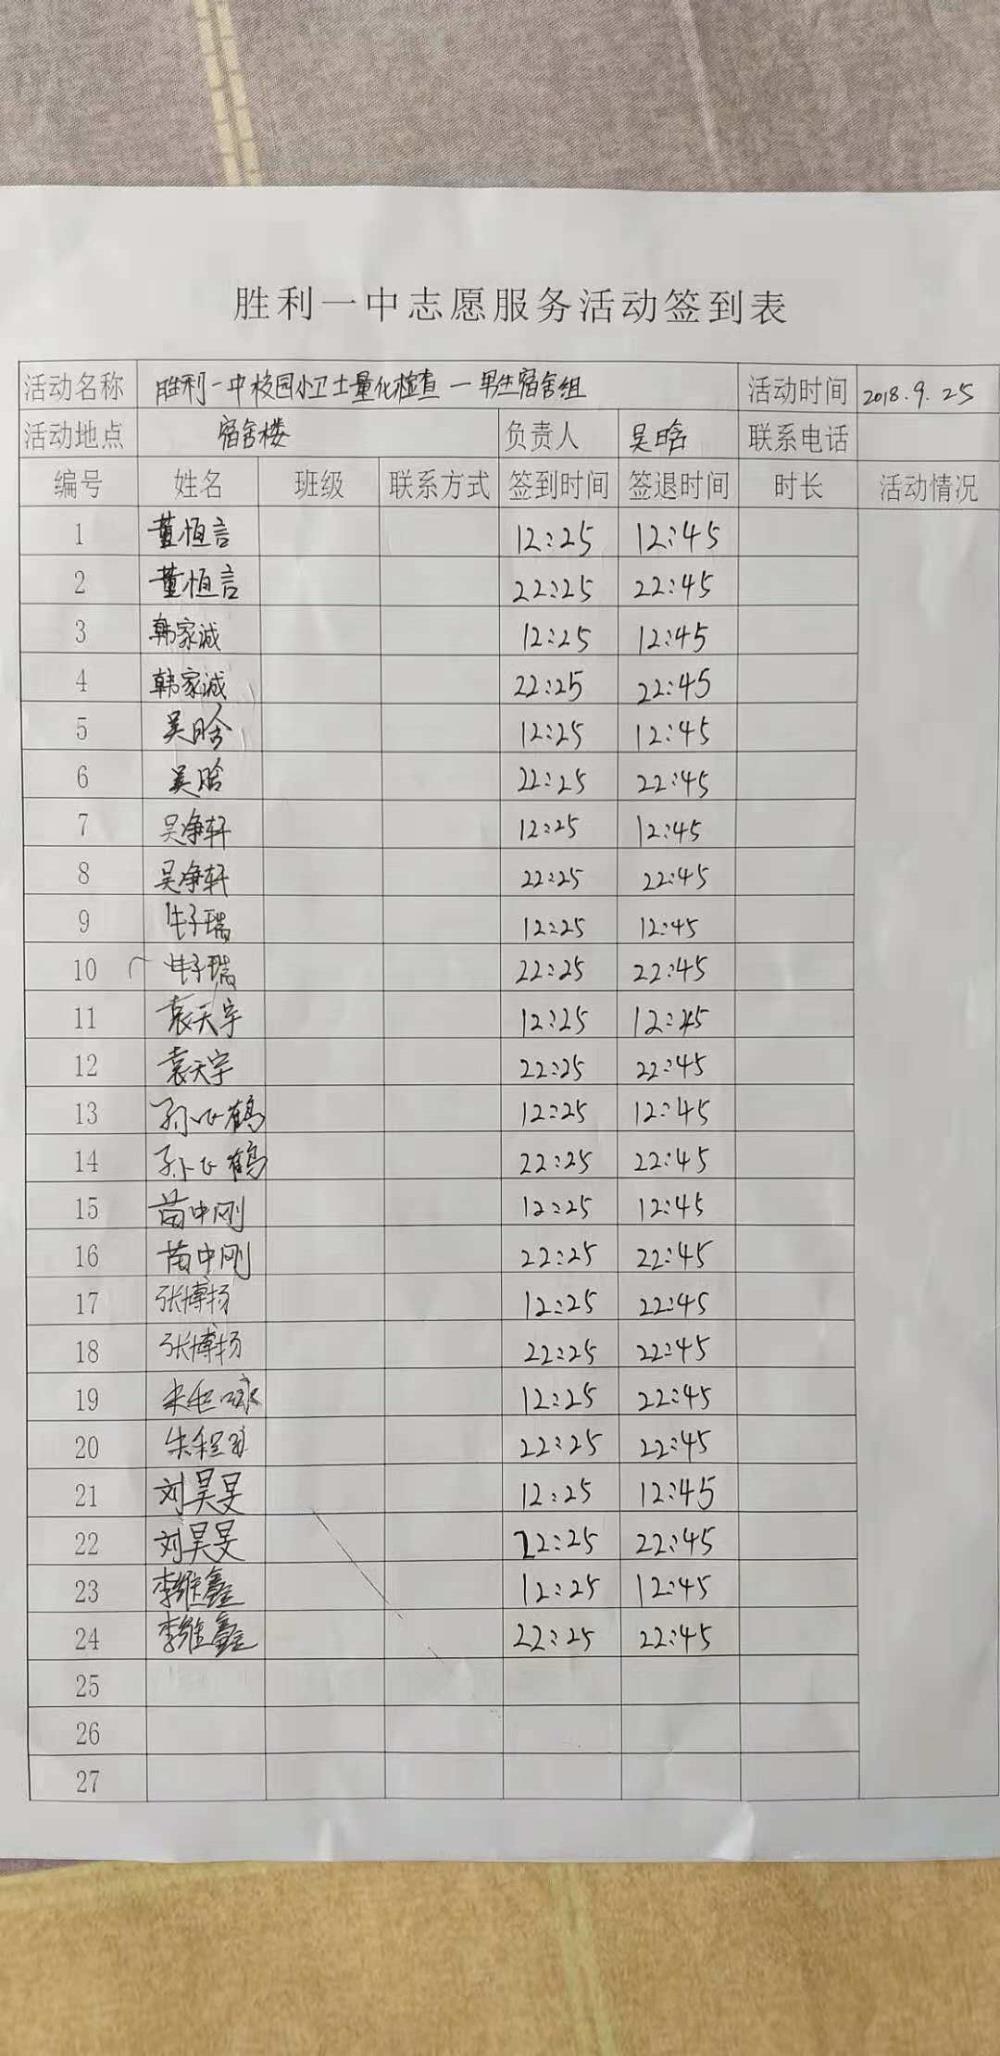 胜利一中志愿服务活动签到表
活动名称 胜利一中校园小卫士量化检查一男生宿舍组 活动时间 2018.9.25
活动地点 宿舍楼 负责人 吴晗 联系电话
编号 姓名 班级 联系方式 签到时间 签退时间 时长 活动情况
1 董恒言 12:25 12:45
2 董恒言 22:25 22:45
3 韩家诚 12:25 12:45
4 韩家诚 22:25 22:45
5 吴晗 12:25 12:45
6 吴晗 22:25 22:45
7 吴净轩 12:25 12:45
8 吴净轩 22:25 22:45
9 牛子瑞 12:25 12:45
10 牛子瑞 22:25 22:45
11 袁天宇 12:25 12:45
12 袁天宇 22:25 22:45
13 孙飞鹤 12:25 12:45
14 孙飞鹤 22:25 22:45
15 苗中刚 12:25 12:45
16 苗中刚 22:25 22:45
17 张博扬 12:25 22:45
18 张博扬 22:25 22:45
19 12:25 22:45
20 22:25 22:45
21 刘昊旻 12:25 12:45
22 刘昊旻 22:25 22:45
23 李维鑫 12:25 12:45
24 李维鑫 22:25 22:45
25
26
27